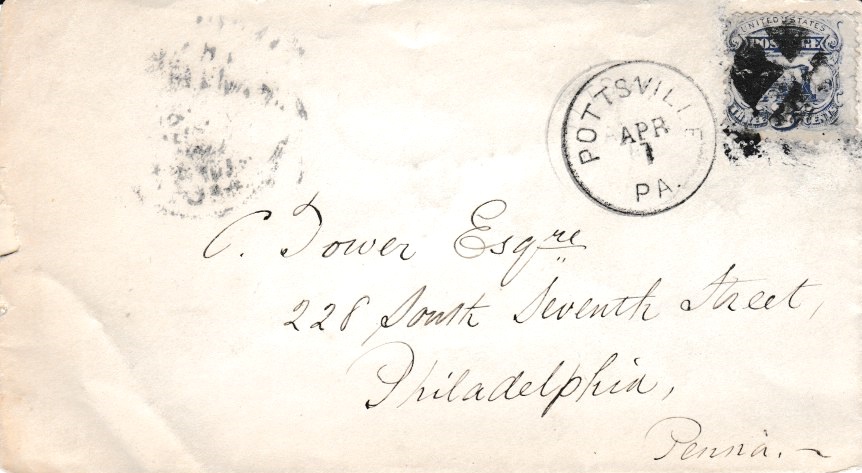 UNITED STATES
POSTAGE
POTTSVILLE
APR
7
PA.
C. Tower Esqre
228 South Seventh Street,
Philadelphia,
Penna.